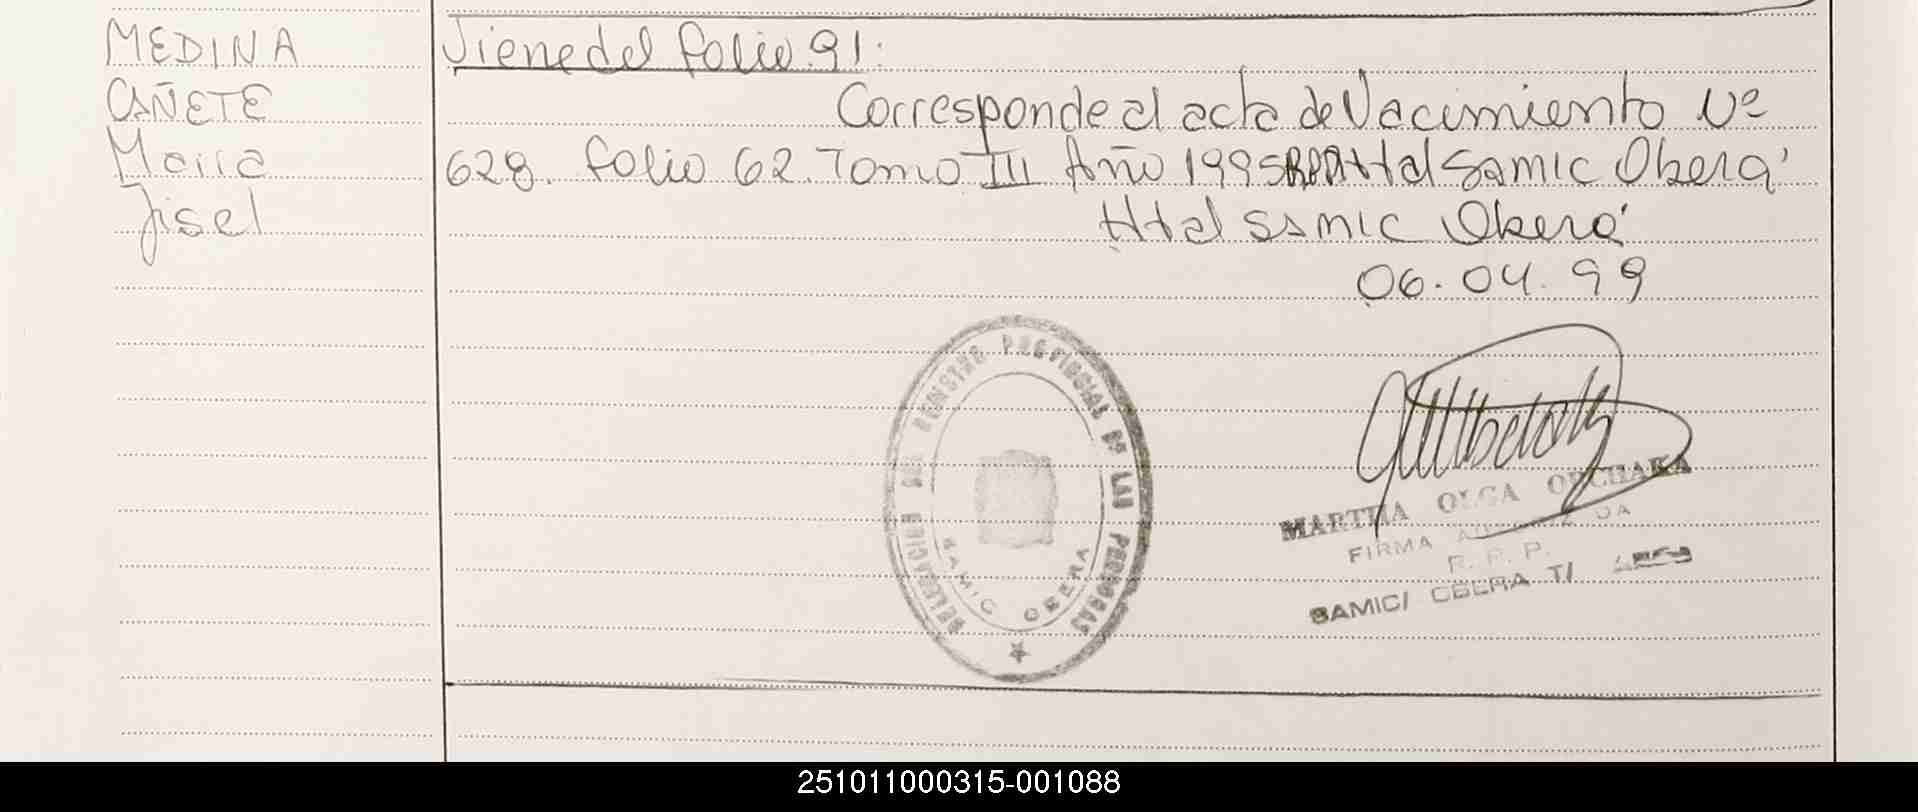 MEDINA
CAÑETE
Maira
Jisel
Viene del folio 91:
Corresponde al acta de Nacimiento Nº
628. folio 62. Tomo III Año 1995 RPP Htal Samic Oberá
Htal Samic Oberá
06.04.99
DELEGACION DEL REGISTRO PROVINCIAL DE LAS PERSONAS
SAMIC OBERA
MARTHA OLGA ORCHAKA
FIRMA AUTORIZADA
R. P. P.
SAMIC/ OBERA T/
251011000315-001088